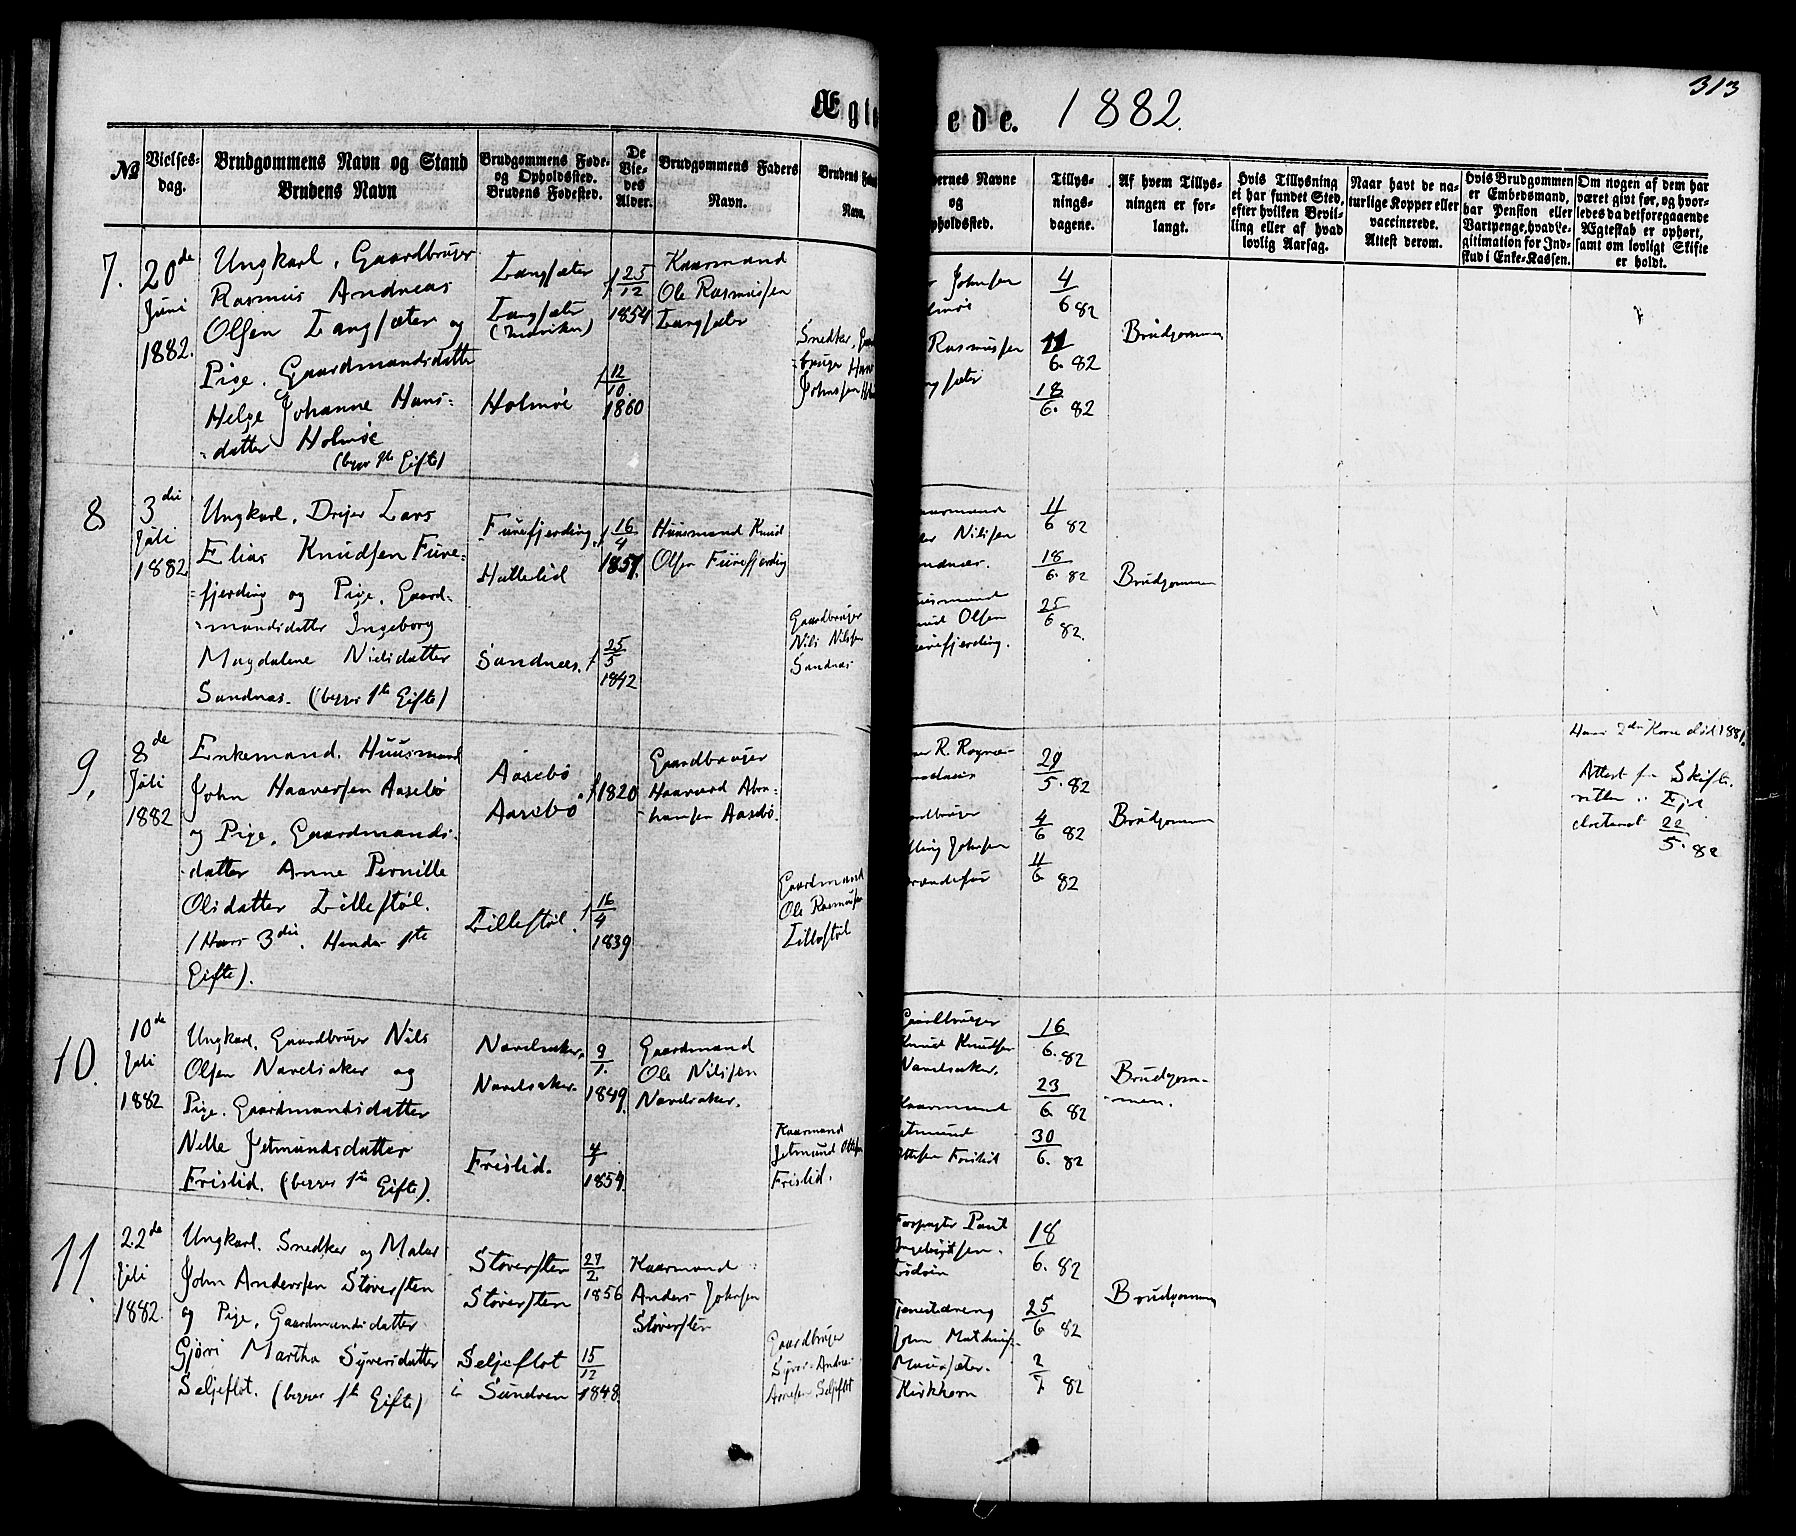 313
Ægte
ede. 1882.
№
Vielses-
dag.
Brudgommens Navn og Stand
Brudens Navn
Brudgommens Føde-
og Opholdssted.
Brudens Fødested.
De
Vie-
des
Alder.
Brudgommens Faders
Navn.
Brudens
Navn.
ernes Navne
og
pholdssted.
Tillys-
nings-
dagene.
Af hvem Tillys-
ningen er for-
langt.
Hvis Tillysning
ei har fundet Sted,
efter hvilken Bevil-
ling eller af hvad
lovlig Aarsag.
Naar havt de na-
turlige Kopper eller
vaccinerede.
Attest derom.
Hvis Brudgommen
er Embedsmand,
har Pension eller
Vartpenge, hvad Le-
gitimation for Ind-
skud i Enke-Kassen.
Om nogen af dem har
været givt før, og hvor-
ledes da det foregaaende
Ægteskab er ophørt,
samt om lovligt Skifte
er holdt.
7.
20de
Juni
1882.
Ungkarl, Gaardbruger
Rasmus Andreas
Olsen Langsæter og
Pige, Gaardmandsdatter
Helge Johanne Hans-
datter Holmøe
(begges 1ste Gifte)
Langsæter
Langsæter
Holmøe
f 25/12
1854
f 12/10
1860
Kaarmand
Ole Rasmussen
Langsæter
Snedker,
bruger Hans
Johnsen
Johnsen
Rasmussen
4/6 82
11/6. 82
18/6. 82
Brudgommen
8
3die
Juli
1882
Ungkarl, Drejer Lars
Elias Knudsen Fure-
fjerding og Pige, Gaard-
mandsdatter Ingeborg
Magdalene Nielsdatter
Sandnæs. (begges 1ste Gifte)
Furefjerding
Sandnæs.
f 16/4
f 25/5
1842
Huusmand Knud
Olsen Furefjerding
Gaardbruger
Nils Nilssen
Sandnæs
Nilssen
Olsen
11/6 82
18/6. 82
25/6 82.
Brudgommen
9.
8de
Juli
1882
Enkemand, Huusmand
John Haaversen Aasebø
og Pige, Gaardmands-
datter Anne Pernille
Olsdatter Lillestøl.
(Hans 3die, Hendes 1ste
Gifte).
Aasebø
Aasebø
Lillestøl.
f 1820
f 16/4
1839
Gaardbruger
Haavard Abra-
hamsen Aasebø.
Gaardmand
Ole Rasmusen
Lillestøl
Johnsen
29/5. 82
4/6 82
11/6 82
Brudgommen
Hans 2den Kone død 1881.
Attest fra Skifte-
retten i Ejd
dateret 22/5. 82
10.
10de
Juli
1882
Ungkarl, Gaardbruger Nils
Olsen Navelsaker og
Pige, Gaardmandsdatter
Nille Jetmundsdatter
Frislid. (begges 1ste Gifte).
Navelsaker.
Navelsaker.
Frislid.
9/1.
1849.
Gaardmand
Ole Nilssen
Navelsaker.
Kaarmand
Jetmund Ottesen
Frislid.
Gaardbruger
Knud Knudsen
Navelsaker.
Kaarmand
Jetmund
Ottesen Frislid
16/6. 82
23/6. 82
30/6. 82
Brudgom-
men.
11.
22de
Juli
1882.
Ungkarl, Snedker og Maler
John Anderssen Støversten
og Pige, Gaardmandsdatter
Gjøri Martha Syversdatter
Seljeflot. (begges 1ste Gifte)
Støversten
Støversten
Seljeflot
i Sundven
27/2
1856
15/12
1848
Kaarmand
Anders Johnsen
Støversten
Gaardbruger
Syver Andreas
Arnesen Seljeflot
Forpagter Paul
Tjenestedreng
John
Kirkhorn
18/6. 82
25/6 82
2/7 82
Brudgommen